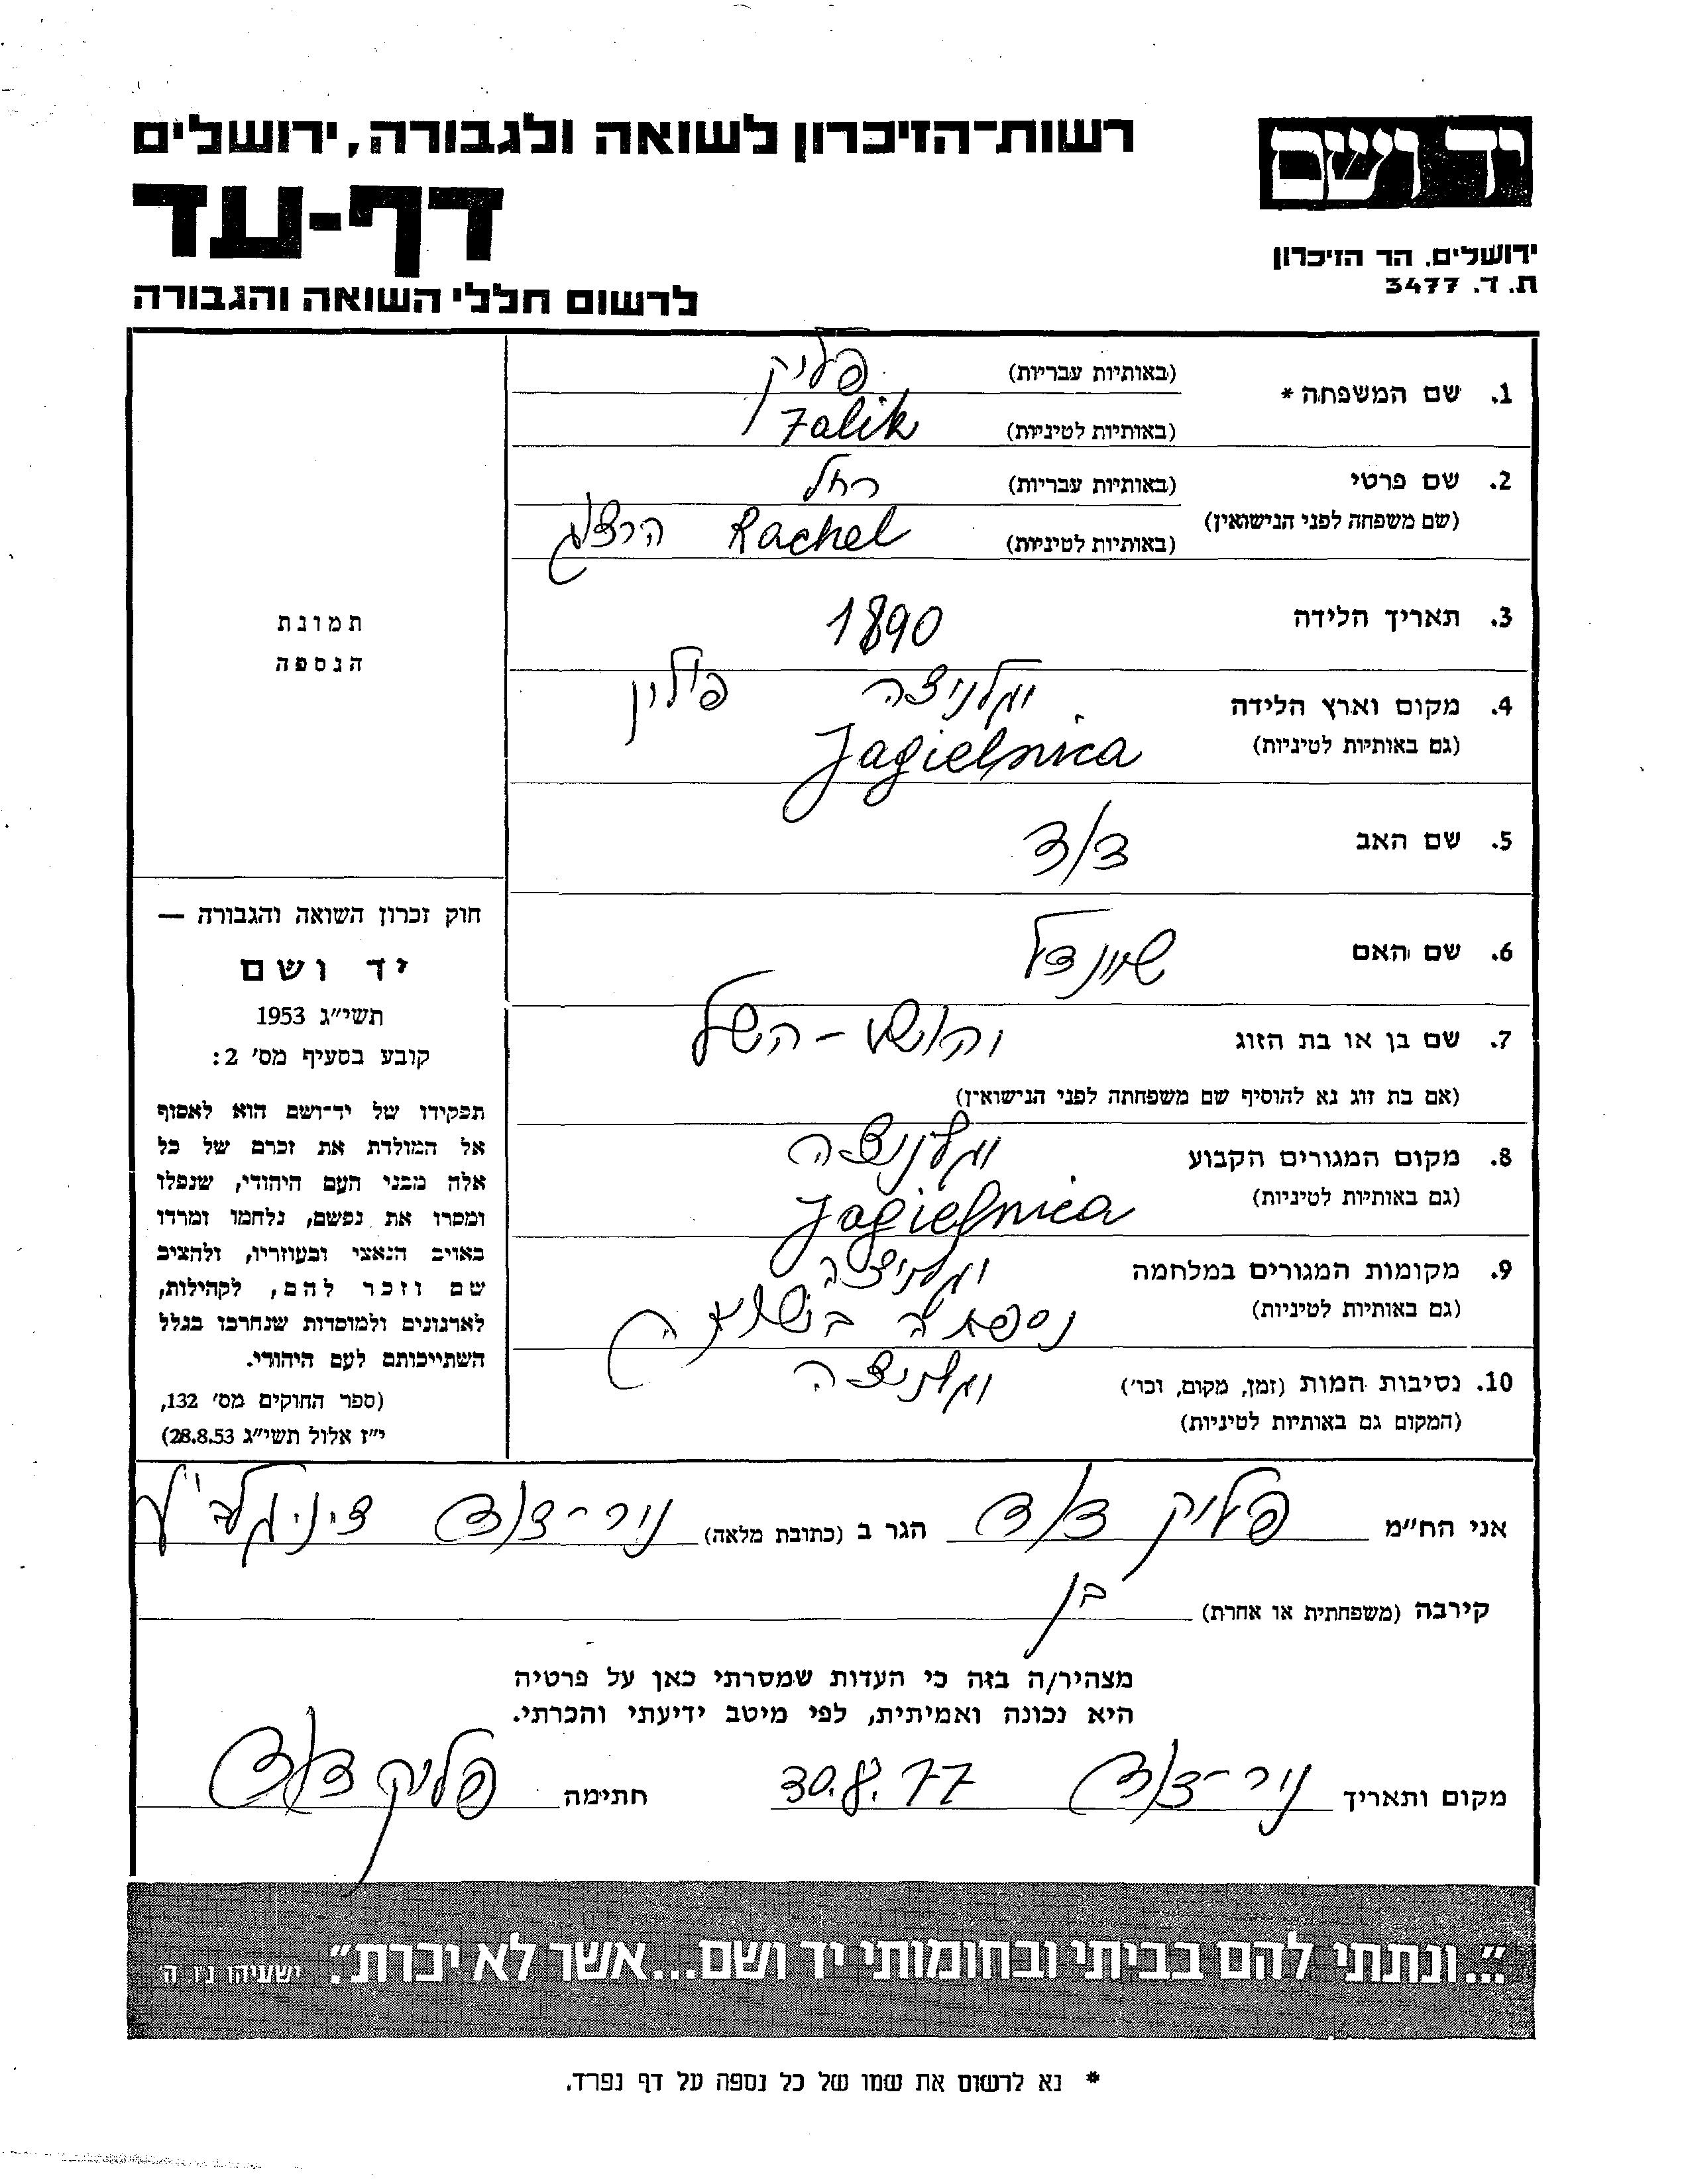 רשות־הזיכרון לשואה ולגבורה, ירושלים
יד ושם
דף-עד
ירושלים, הר הזיכרון
ת. ד. 3477
לרשום חללי השואה והגבורה
1. שם המשפחה *
(באותיות עבריות) פליק
(באותיות לטיניות) Falik
2. שם פרטי
(באותיות עבריות) רחל
(שם משפחה לפני הנישואין)
(באותיות לטיניות) Rachel הרצוג
3. תאריך הלידה 1890
4. מקום וארץ הלידה יגלניצה פולין
(גם באותיות לטיניות) Jagielnica
5. שם האב דוד
6. שם האם שיינדל
7. שם בן או בת הזוג יהושע - השל
(אם בת זוג נא להוסיף שם משפחתה לפני הנישואין)
8. מקום המגורים הקבוע יגלניצה
(גם באותיות לטיניות) Jagielnica
9. מקומות המגורים במלחמה יגלניצה
(גם באותיות לטיניות)
נספתה בשואה
10. נסיבות המות (זמן, מקום, וכו') יגלניצה
(המקום גם באותיות לטיניות)
תמונת
הנספה
חוק זכרון השואה והגבורה —
יד ושם
תשי"ג 1953
קובע בסעיף מס' 2:
תפקידו של יד־ושם הוא לאסוף
אל המולדת את זכרם של כל
אלה מבני העם היהודי, שנפלו
ומסרו את נפשם, נלחמו ומרדו
באויב הנאצי ובעוזריו, ולהציב
שם וזכר להם, לקהילות,
לארגונים ולמוסדות שנחרבו בגלל
השתייכותם לעם היהודי.
(ספר החוקים מס' 132,
י"ז אלול תשי"ג 28.8.53)
אני הח"מ פליק דוד הגר ב (כתובת מלאה) ניר-דוד
קירבה (משפחתית או אחרת) בן
מצהיר/ה בזה כי העדות שמסרתי כאן על פרטיה
היא נכונה ואמיתית, לפי מיטב ידיעתי והכרתי.
מקום ותאריך ניר-דוד 30.8.77 חתימה פליק דוד
"...ונתתי להם בביתי ובחומותי יד ושם...אשר לא יכרת". ישעיהו נ"ו ה'
* נא לרשום את שמו של כל נספה על דף נפרד.